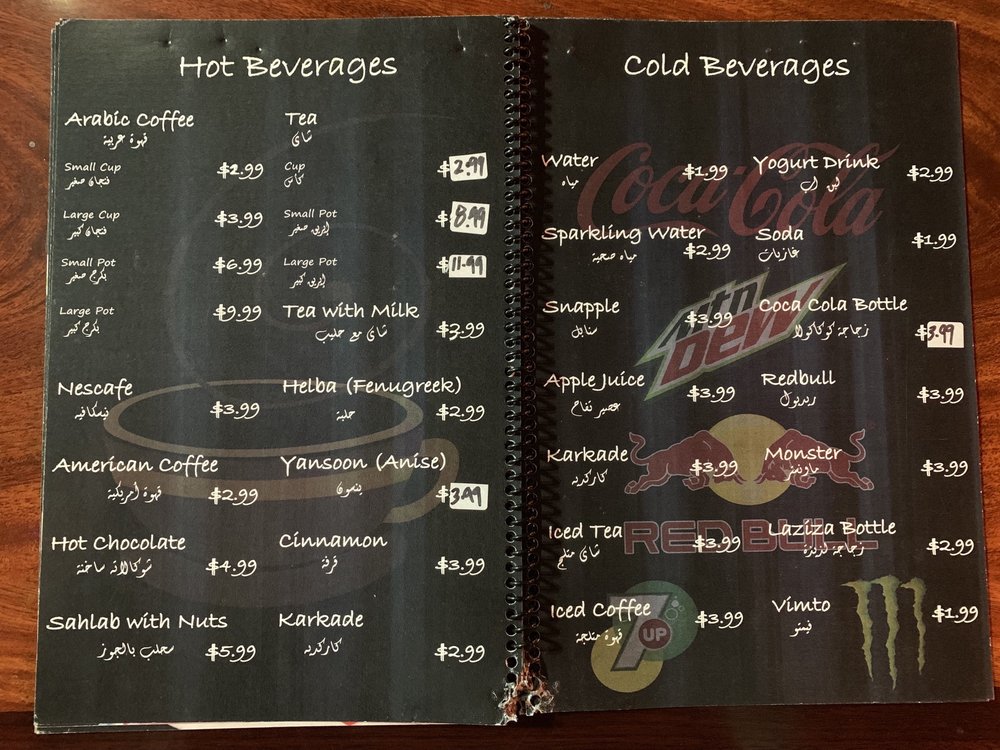 Hot Beverages
Arabic Coffee
قهوة عربية
Small Cup $2.99
فنجان صغير
Large Cup $3.99
فنجان كبير
Small Pot $6.99
بكرج صغير
Large Pot $9.99
بكرج كبير
Nescafe
نيسكافيه $3.99
American Coffee
قهوة أمريكية $2.99
Hot Chocolate
شوكالاته ساخنة $4.99
Sahlab with Nuts
سحلب بالجوز $5.99
Tea
شاي
Cup $2.99
كاس
Small Pot $8.99
إبريق صغير
Large Pot $11.99
إبريق كبير
Tea with Milk
شاي مع حليب $3.99
Helba (Fenugreek)
حلبة $2.99
Yansoon (Anise)
ينسون $3.99
Cinnamon
قرفة $3.99
Karkade
كاركديه $2.99
Cold Beverages
Water $1.99
مياه
Sparkling Water
مياه صحية $2.99
Snapple $3.99
سنابل
Apple Juice
عصير تفاح $3.99
Karkade $3.99
كاركديه
Iced Tea $3.99
شاي مثلج
Iced Coffee $3.99
قهوة مثلجة
Yogurt Drink $2.99
لبن اب
Soda $1.99
غازيات
Coca Cola Bottle
زجاجة كوكاكولا $3.99
Redbull $3.99
ريدبول
Monster $3.99
مونستر
Laziza Bottle
زجاجة لذيذة $2.99
Vimto $1.99
فيمتو
Coca-Cola
mtn
DEW
RED BULL
7UP